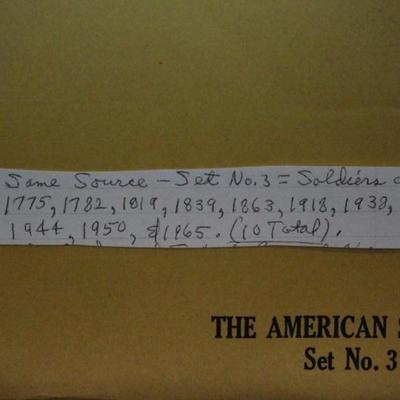 Same Source - Set No. 3 = Soldiers o
1775, 1782, 1819, 1839, 1863, 1918, 1938,
1944, 1950, & 1965. (10 Total).
THE AMERICAN S
Set No. 3